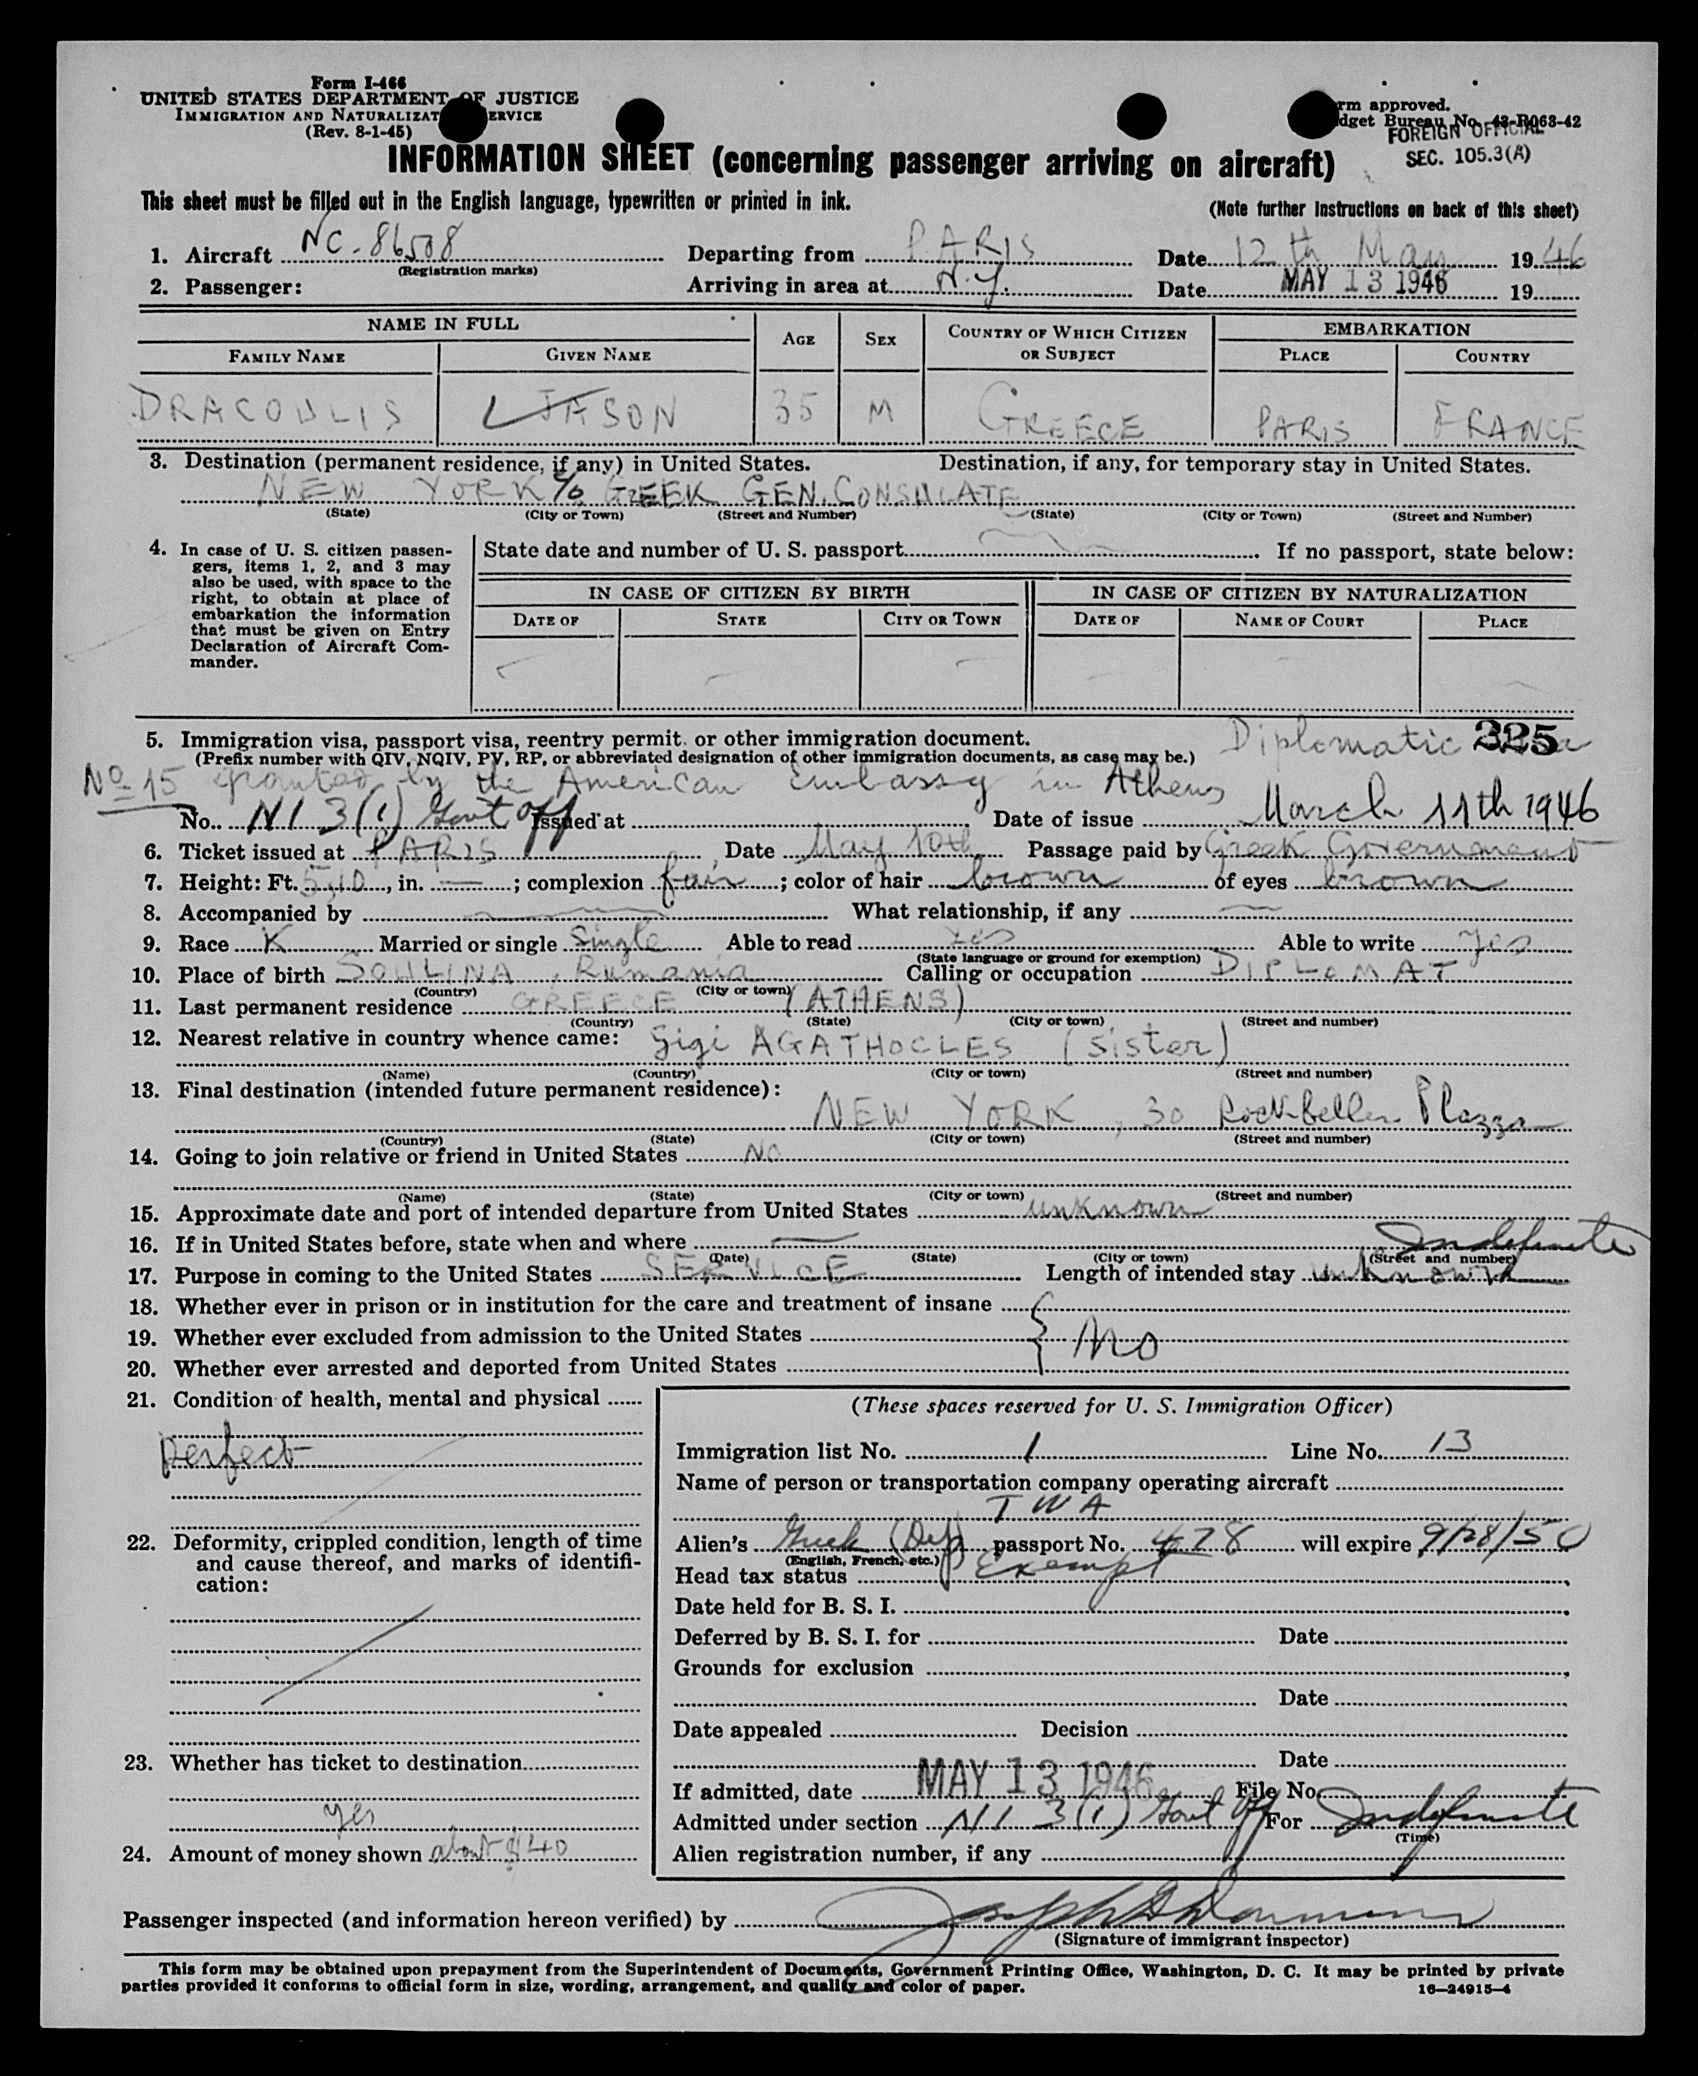 Form I-466
UNITED STATES DEPARTMENT OF JUSTICE
IMMIGRATION AND NATURALIZAT ERVICE
(Rev. 8-1-45)
rm approved.
dget Bureau No. 43-R068-42
FOREIGN OFFICIAL
SEC. 105.3(A)
INFORMATION SHEET (concerning passenger arriving on aircraft)
This sheet must be filled out in the English language, typewritten or printed in ink.
(Note further instructions on back of this sheet)
1. Aircraft NC-86508 Departing from PARIS Date 12th May 1946
(Registration marks)
2. Passenger: Arriving in area at N.Y. Date MAY 13 1946 19
NAME IN FULL AGE SEX COUNTRY OF WHICH CITIZEN OR SUBJECT EMBARKATION
FAMILY NAME GIVEN NAME PLACE COUNTRY
DRACOULIS JASON 35 M GREECE PARIS FRANCE
3. Destination (permanent residence, if any) in United States. Destination, if any, for temporary stay in United States.
NEW YORK % GREEK GEN. CONSULATE
(State) (City or Town) (Street and Number) (State) (City or Town) (Street and Number)
4. In case of U. S. citizen passen-
gers, items 1, 2, and 3 may
also be used, with space to the
right, to obtain at place of
embarkation the information
that must be given on Entry
Declaration of Aircraft Com-
mander.
State date and number of U. S. passport If no passport, state below:
IN CASE OF CITIZEN BY BIRTH IN CASE OF CITIZEN BY NATURALIZATION
DATE OF STATE CITY OR TOWN DATE OF NAME OF COURT PLACE
5. Immigration visa, passport visa, reentry permit, or other immigration document. Diplomatic 325
(Prefix number with QIV, NQIV, PV, RP, or abbreviated designation of other immigration documents, as case may be.)
No 15 granted by the American Embassy in Athens
No. NI 3(1) Govt Off Issued at Date of issue March 11th 1946
6. Ticket issued at PARIS Date May 10th Passage paid by Greek Government
7. Height: Ft. 5,10, in. —; complexion fair; color of hair brown of eyes brown
8. Accompanied by What relationship, if any —
9. Race K Married or single Single Able to read yes Able to write yes
(State language or ground for exemption)
10. Place of birth SOULINA, Rumania Calling or occupation DIPLOMAT
(Country) (City or town)
11. Last permanent residence GREECE (ATHENS)
(Country) (State) (City or town) (Street and number)
12. Nearest relative in country whence came: Gigi AGATHOCLES (sister)
(Name) (Country) (City or town) (Street and number)
13. Final destination (intended future permanent residence):
NEW YORK, 30 Rockfeller Plazza
(Country) (State) (City or town) (Street and number)
14. Going to join relative or friend in United States No
(Name) (State) (City or town) (Street and number)
15. Approximate date and port of intended departure from United States unknown
16. If in United States before, state when and where — Indefinite
(Date) (State) (City or town) (Street and number)
17. Purpose in coming to the United States SERVICE Length of intended stay unknown
18. Whether ever in prison or in institution for the care and treatment of insane
19. Whether ever excluded from admission to the United States No
20. Whether ever arrested and deported from United States
21. Condition of health, mental and physical
perfect
22. Deformity, crippled condition, length of time
and cause thereof, and marks of identifi-
cation:
23. Whether has ticket to destination
yes
24. Amount of money shown about $40
(These spaces reserved for U. S. Immigration Officer)
Immigration list No. 1 Line No. 13
Name of person or transportation company operating aircraft
TWA
Alien's Greek (Dip) passport No. 478 will expire 9/28/50
(English, French, etc.)
Head tax status Exempt
Date held for B. S. I.
Deferred by B. S. I. for Date
Grounds for exclusion
Date
Date appealed Decision
Date
If admitted, date MAY 13 1946 File No.
Admitted under section NI 3(1) Govt Off For Indefinite
(Time)
Alien registration number, if any
Passenger inspected (and information hereon verified) by Joseph
(Signature of immigrant inspector)
This form may be obtained upon prepayment from the Superintendent of Documents, Government Printing Office, Washington, D. C. It may be printed by private
parties provided it conforms to official form in size, wording, arrangement, and quality and color of paper.
16—24915-4